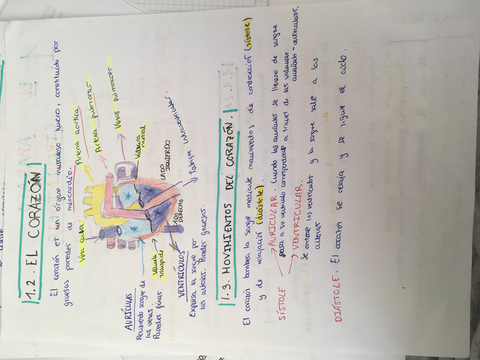 1.2. EL CORAZÓN
El corazón es un órgano musculoso hueco, constituido por
gruesas paredes de miocardio.
Arteria aortica
Arteria pulmonar
Vena pulmonar
Vena cava
Válvula mitral
LADO IZQUIERDO
Tabique interventricular
LADO DERECHO
Válvula tricúspide
AURÍCULAS
Recuerdo sangre de
las venas
Paredes finas
VENTRÍCULOS
Expulsa la sangre por
las arterias. Paredes gruesas.
1.3. MOVIMIENTOS DEL CORAZÓN.
El corazón bombea la sangre mediante movimientos de contracción (sístole)
y de relajación (diástole).
SÍSTOLE
AURICULAR. Cuando las aurículas se llenan de sangre
pasa a su ventrículo correspondiente a través de las válvulas
aurículo-ventriculares.
VENTRICULAR.
Se contraen los ventrículos y la sangre sale a las
arterias
DIÁSTOLE. El corazón se relaja y se sigue el ciclo.